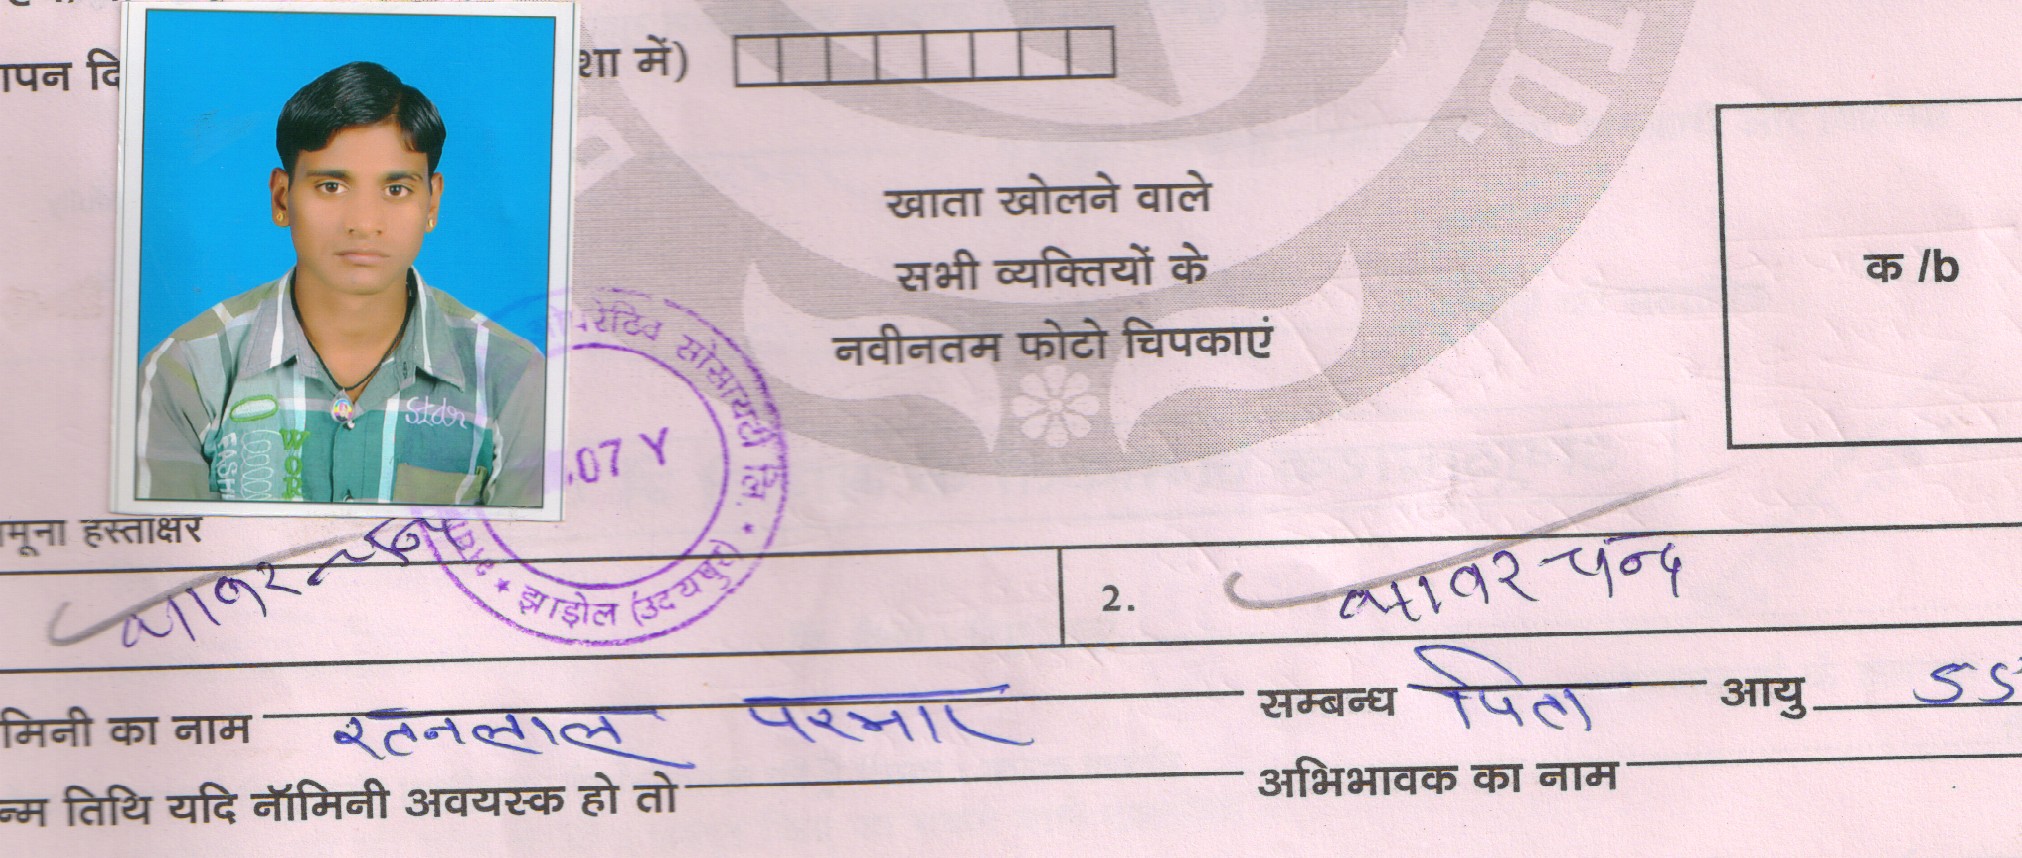 ापन दि
शा में)
TD.
खाता खोलने वाले
सभी व्यक्तियों के
नवीनतम फोटो चिपकाएं
क /b
Stdn
परेटिव सोसायटी लि. * झाड़ोल (उदयपुर) *
.07 Y
मूना हस्ताक्षर
2.
मिनी का नाम रतनलाल परमार सम्बन्ध पिता आयु 55
न्म तिथि यदि नॉमिनी अवयस्क हो तो अभिभावक का नाम